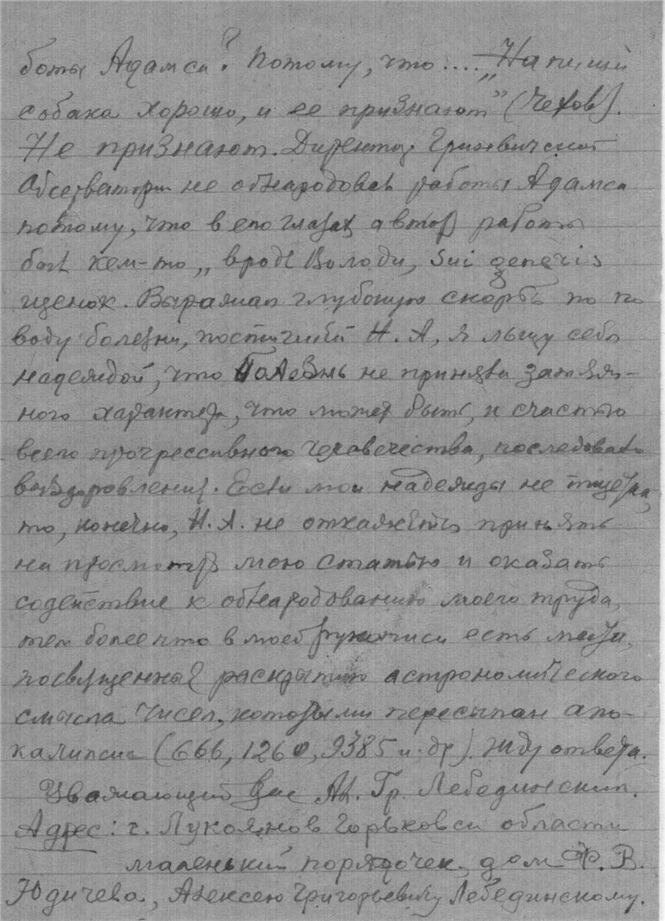 боты Адамса? Потому, что.... „На пищи
собака хорошо, и ее признают” (Чехов).
Не признают. Директор Гриневичской
обсерватории не обнародовал работы Адамса
потому, что в его глазах автор работы
был кем-то „вроде Володи, sui generis
щенок. Выражая глубокую скорбь по по
воду болезни, постигшей Н.А, я льщу себя
надеждой, что болезнь не приняла затяж-
ного характера, что может быть, к счастью
всего прогрессивного человечества, последовало
выздоровление. Если мои надежды не тщетны,
то, конечно, Н.А. не откажется принять
на просмотр мою статью и оказать
содействие к обнародованию моего труда,
тем более что в моей рукописи есть места,
посвященные раскрытию астрономического
смысла чисел, которыми пересыпан апо-
калипсис (666, 1260, 9385 и др). Жду ответа.
Уважающий Вас Ал. Гр. Лебединский.
Адрес: г. Лукоянов Горьковск области
маленький порядочек, дом Ф. В.
Юдичева, Алексею Григорьевичу Лебединскому.